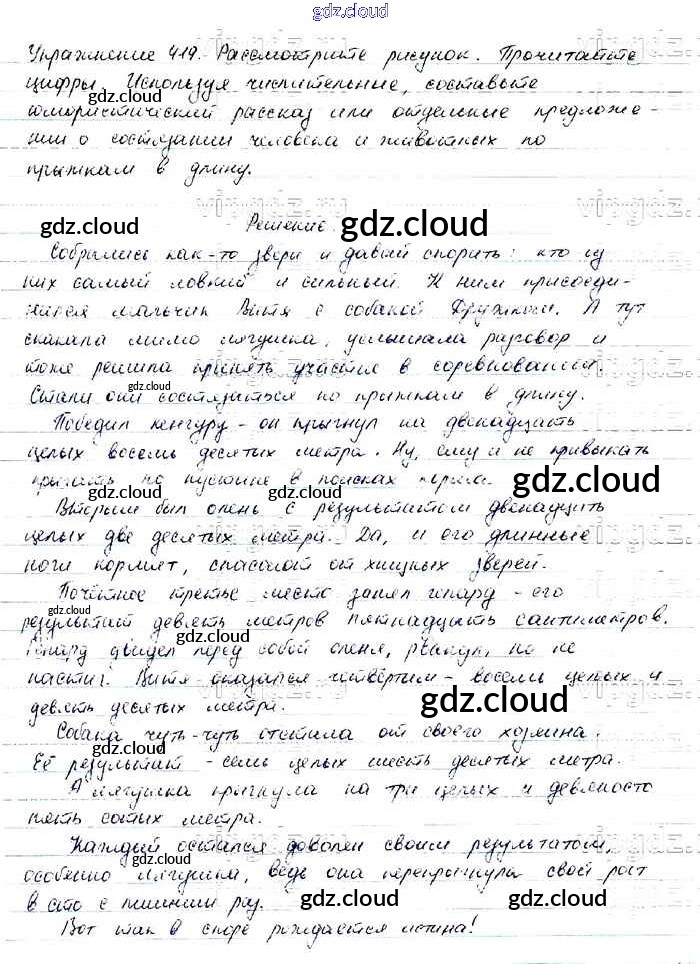 gdz.cloud
Упражнение 419. Рассмотрите рисунок. Прочитайте
цифры. Используя числительные, составьте
юмористический рассказ или отдельные предложе-
нии о состязании человека и животных по
прыжкам в длину.
Решение.
Собрались как-то звери и давай спорить: кто из
них самый ловкий и сильный. К ним присоеди-
нился мальчик Витя с собакой Дружком. А тут
скакала мимо лягушка, услышала разговор и
тоже решила принять участие в соревнованиях.
Стали они состязаться по прыжкам в длину.
Победил кенгуру - он прыгнул на двенадцать
целых восемь десятых метра. Ну, ему и не привыкать
прыгать по пустыне в поисках корма.
Вторым был олень с результатом двенадцать
целых две десятых метра. Да, и его длинные
ноги кормят, спасают от хищных зверей.
Почётное третье место занял гепард - его
результат девять метров пятнадцать сантиметров.
Гепард увидел перед собой оленя, рванул, но не
настиг. Витя оказался четвёртым - восемь целых и
девять десятых метра.
Собака чуть-чуть отстала от своего хозяина.
Её результат - семь целых шесть десятых метра.
А лягушка прыгнула на три целых и девяносто
пять сотых метра.
Каждый остался доволен своим результатом,
особенно лягушка, ведь она перепрыгнула свой рост
в сто с лишним раз.
Вот так в споре рождается истина!